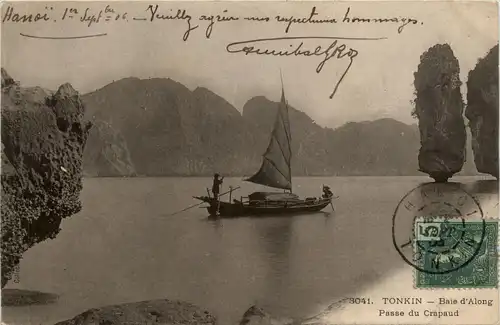 Hanoï 1er Sept bre 06 – Veuillez agréer mes respectueux hommages.
3041. TONKIN – Baie d'Along
Passe du Crapaud
TONKIN
5